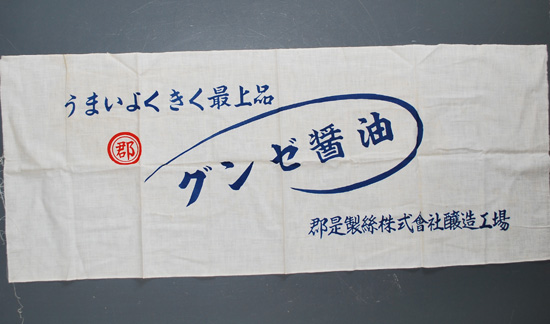 うまいよくきく最上品
郡
グンゼ醤油
郡是製絲株式會社醸造工場